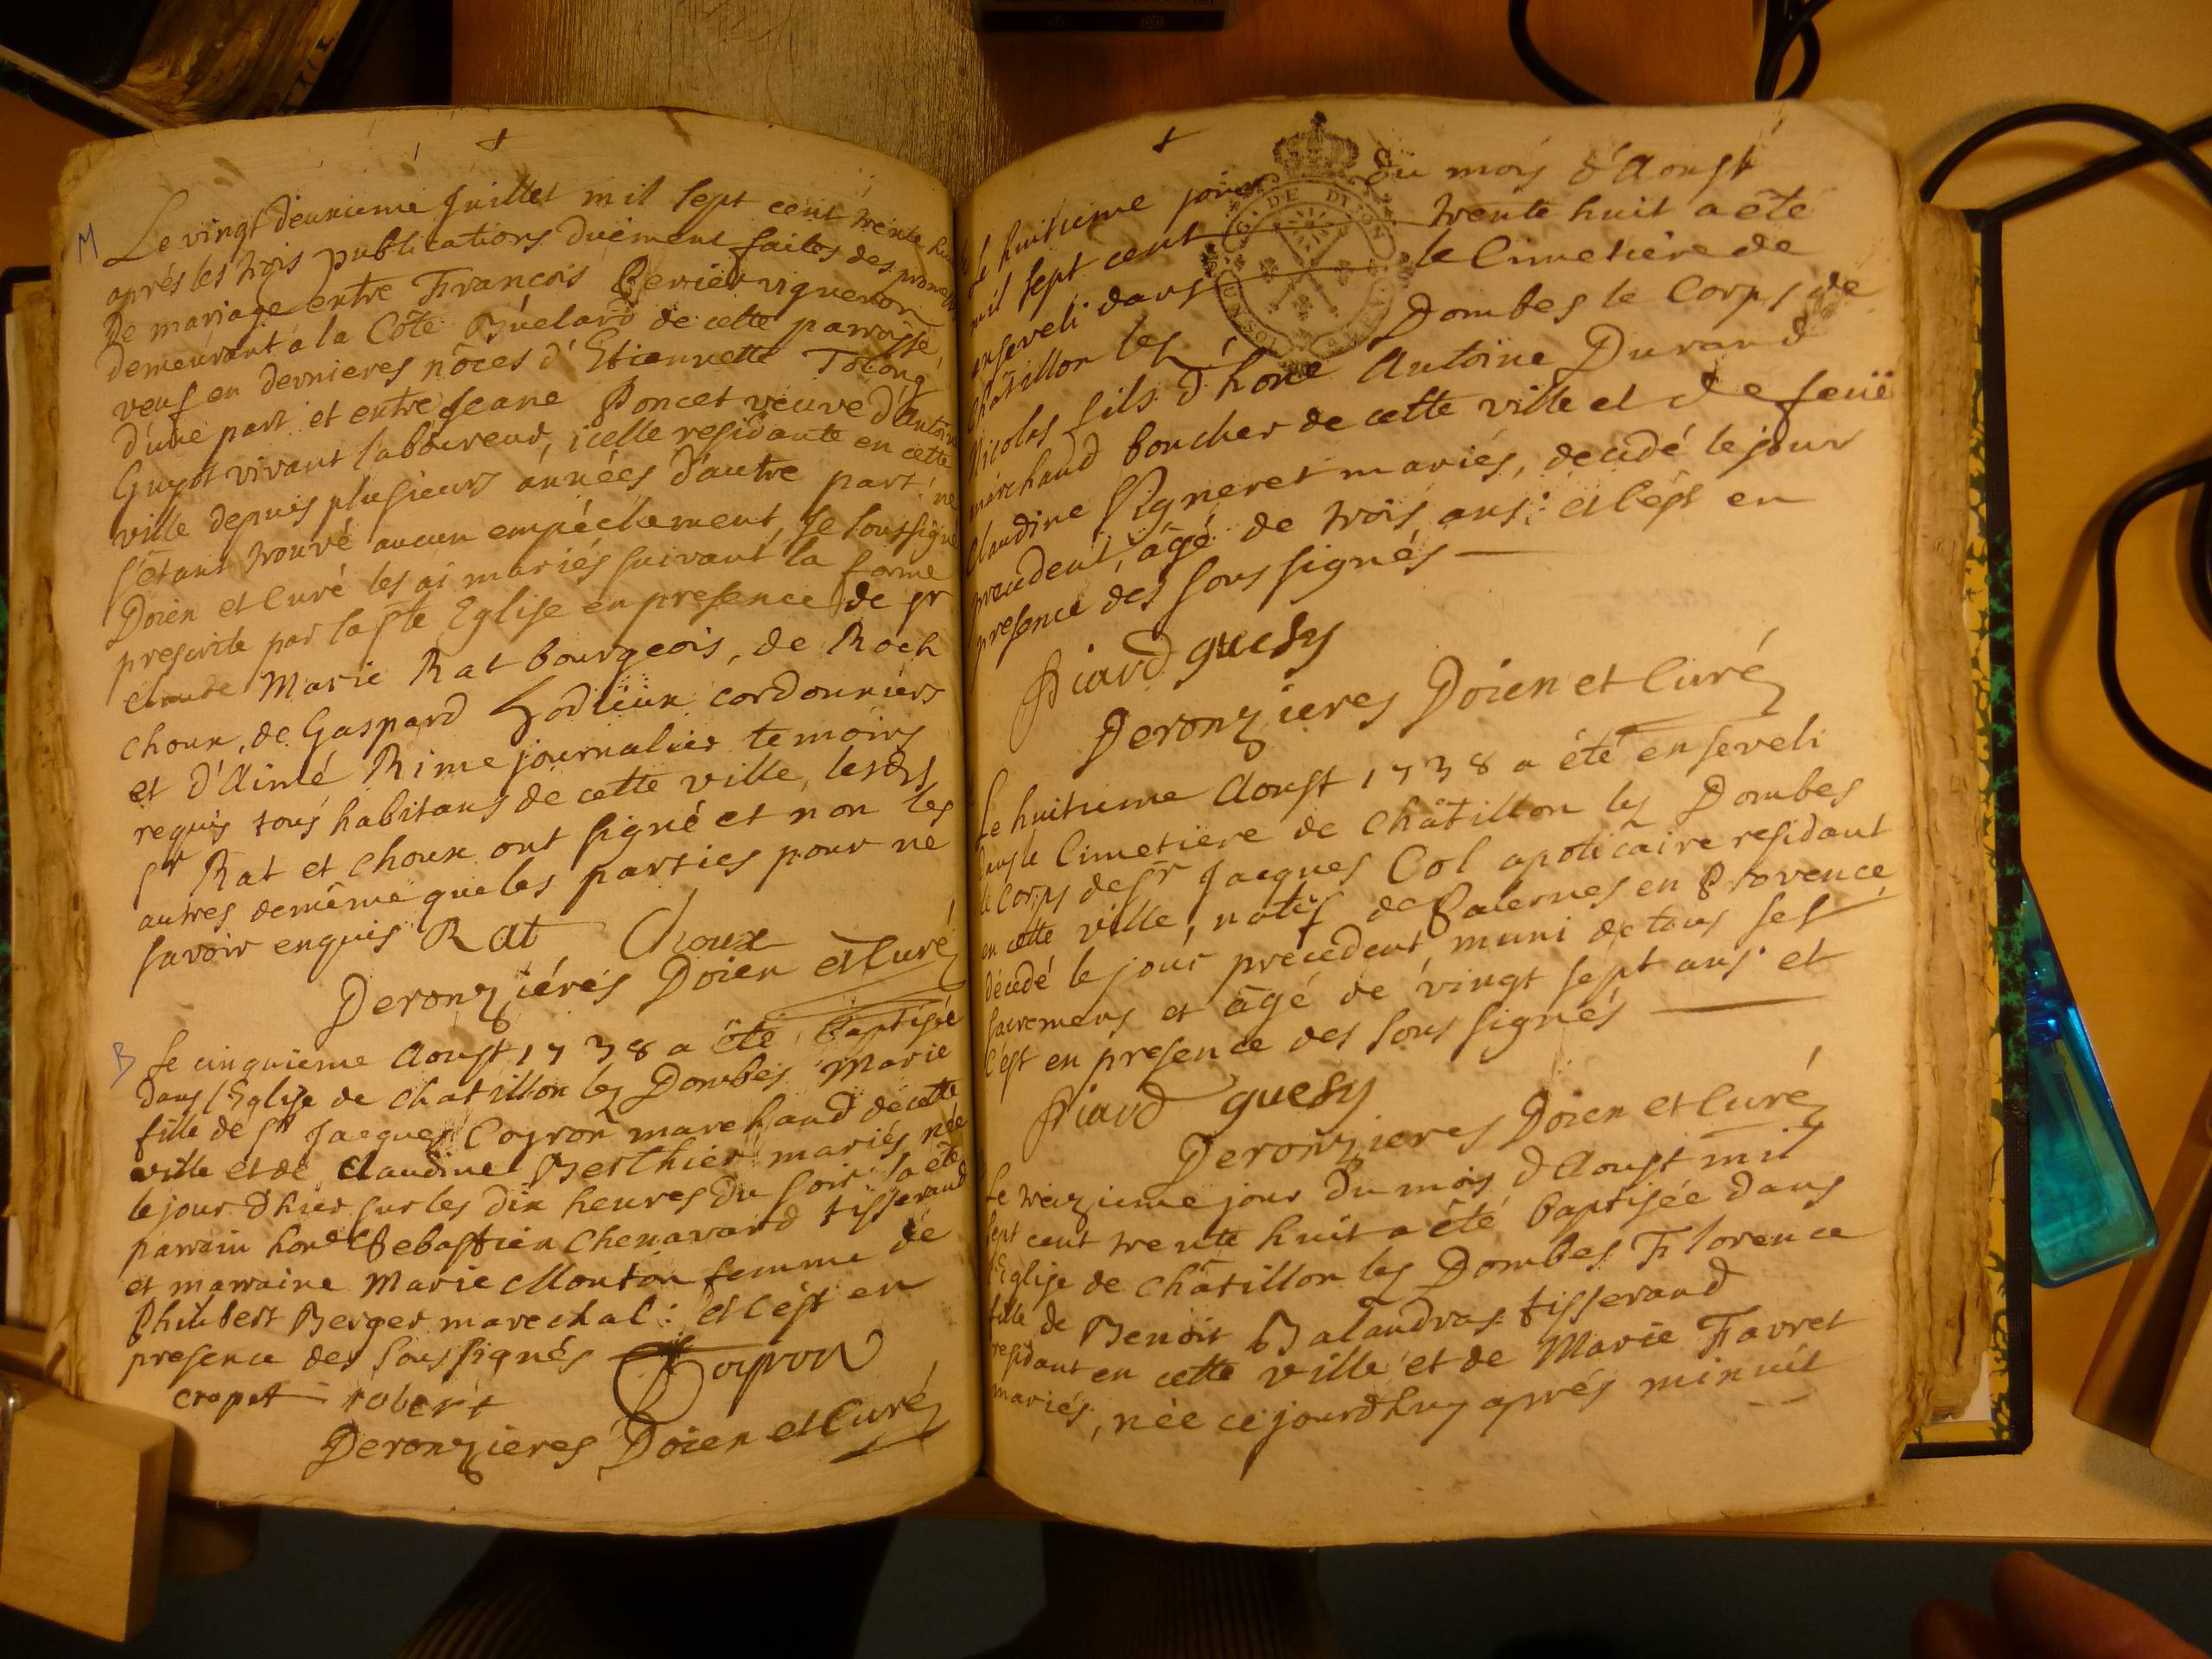 M
Le vingt deuxieme Juillet mil sept cent trente huit
aprés les trois publications düement faites des promesses
de mariage entre Francois Perrier vigneron
demeurant à la Côte Büelard de cette parroisse,
veuf en dernieres nôces d'Etiennette Tocong
d'une part et entre Jeane Poncet veuve d'Antoine
Guyot vivant laboureur, icelle residante en cette
ville depuis plusieurs années d'autre part: ne
s'étant trouvé aucun empéchement, Je soussigné
Doien et Curé les ai mariés suivant la forme
prescrite par la Ste Eglise en presence de sr
claude Marie Rat bourgeois, de Roch
choux, de Gaspard Hodieux cordonniers
et d'Aimé Rime journalier temoins
requis tous habitans de cette ville, lesds
Sr Rat et choux ont signé et non les
autres de même que les parties pour ne
savoir enquis Rat Choux
Deronziérés Doien et Curé
B
Le cinquieme Aoust 1738 a été baptisée
dans l'Eglise de chatillon les Dombes Marie
fille de Sr Jacques Coyron marchand de cette
ville et de claudine Berthier mariés, née
le jour d'hier sur les dix heures du soir: la été
parrain hone Sebastien Chenavard tisserand
et marraine Marie Monton femme de
Philibert Berger marechal: et c'est en
presence des soussignés Coyron
cropet robert
Deronzieres Doien et Curé
Le huitieme jour du mois d'Aoust
mil sept cent trente huit a été
enseveli dans le Cimetiere de
Châtillon les Dombes le Corps de
Nicolas fils d'hone Antoine Durand
marchand boucher de cette ville et de feüe
Claudine Vigneret mariés, decedé le jour
precedent, âgé de trois ans: et c'est en
presence des sous signés
G. DE DIJON
Piard guesy
Deronzieres Doien et Curé
Le huitieme Aoust 1738 a été enseveli
dans le Cimetiere de châtillon les Dombes
le Corps de sr Jacques Col apoticaire residant
en cette ville, natif de Salernes en Provence
décedé le jour precedent, muni de tous ses
sacremens et âgé de vingt sept ans: et
c'est en presence des sous signés
Piard guesy
Deronzieres Doien et Curé
Le treizieme jour du mois d'Aoust mil
sept cent trente huit a été baptisée dans
l'Eglise de châtillon les Dombes Florence
fille de Benoit Balandras tisserand
residant en cette ville et de Marie Favret
mariés, née ce jourd'huy aprés minuit